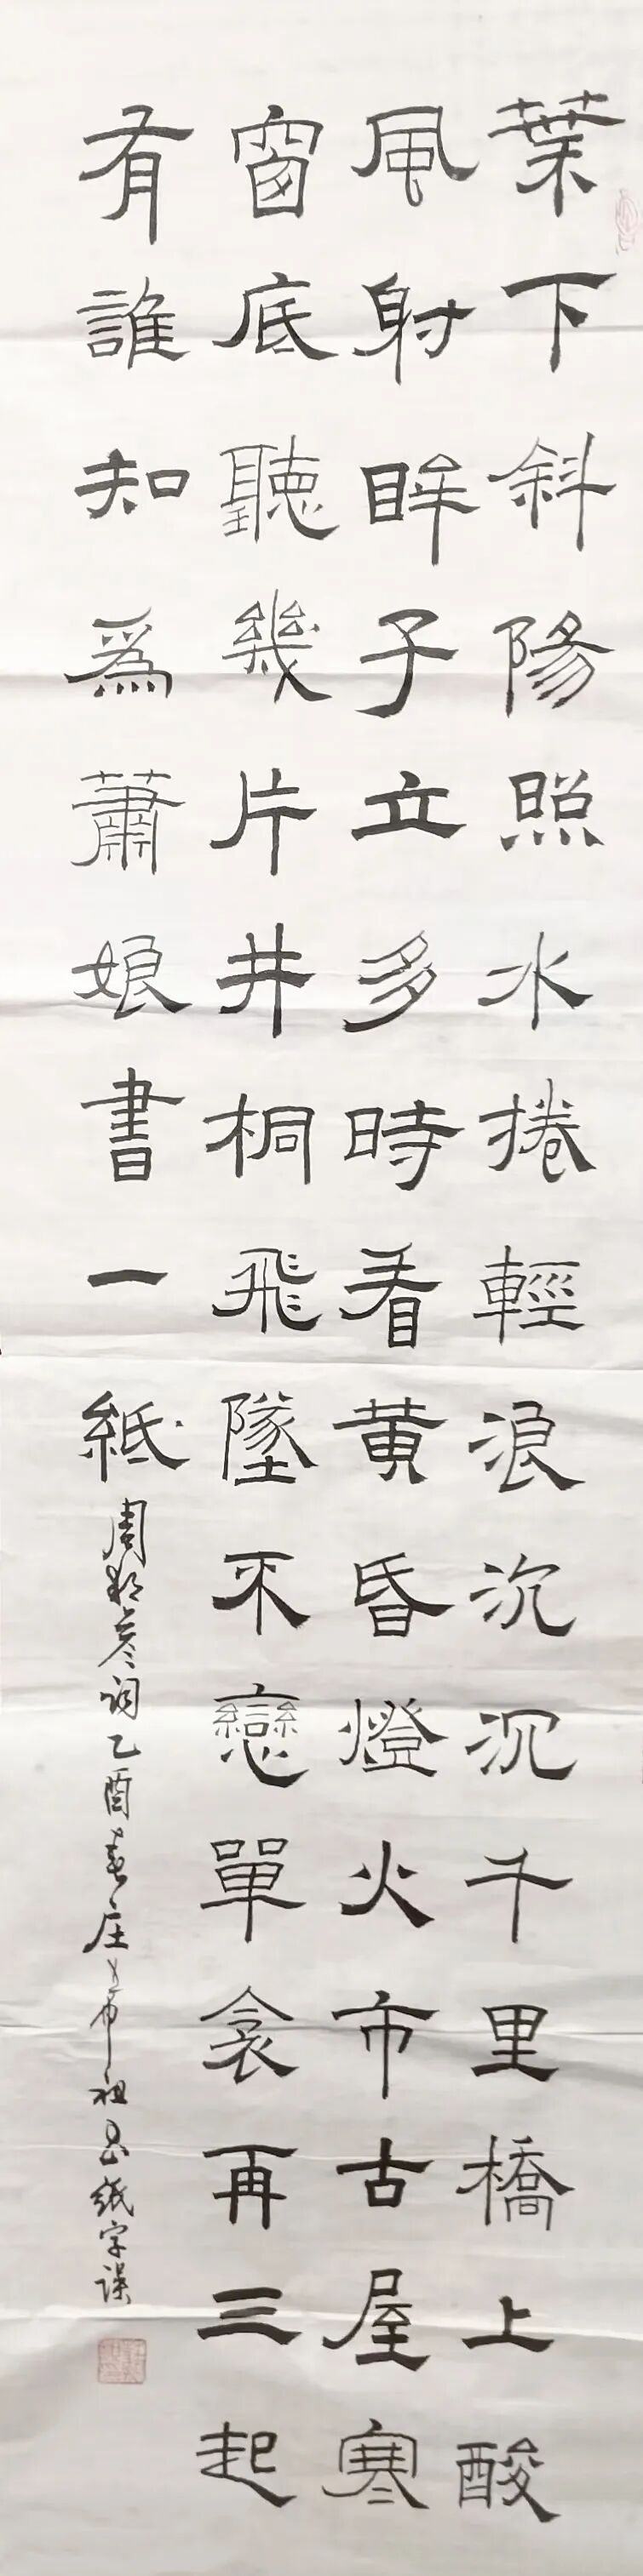 葉下斜陽照水捲輕浪沉沉千里橋上酸
風射眸子立多時看黄昏燈火市古屋寒
窗底聽幾片井桐飛墜不戀單衾再三起
有誰知爲蕭娘書一紙
周邦彦詞乙酉春庄希祖书紙字誤